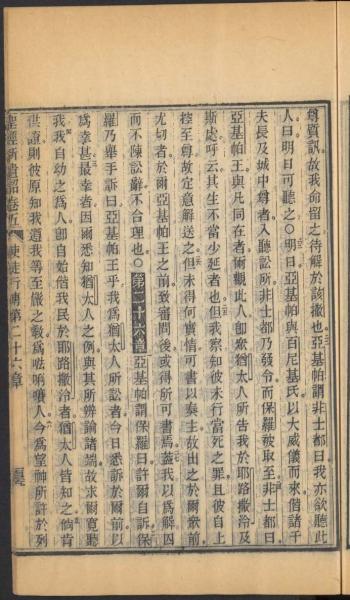 尊質訊故我命留之待解於該撒也亞基帕謂非士都曰我亦欲聽此
人曰明日可聽之○明日亞基帕與百尼基氏以大威儀而來偕諸千
夫長及城中尊者入聽訟所非士都乃發令而保羅被取至非士都曰
亞基帕王與凡同在者爾觀此人卽衆猶太人所告我於耶路撒冷及
斯處呼云其生不當少延者也但我察知彼未行當死之罪且彼自上
控至尊故定意解送之但未得何實情可書以奏主故出之於爾衆前
尤切者於爾亞基帕王之前致審問後或得所可書焉蓋我以為解囚
而不陳訟辭不合理也○第二十六章亞基帕謂保羅曰許爾自訴保
羅乃舉手訴曰亞基帕王乎我為猶太人所訟者今日悉訴於爾前以
為幸甚最幸者因爾悉知猶太人之例與其所辨論諸端故求爾寬聽
我我自幼之為人卽自始偕我民於耶路撒冷者猶太人皆知之倘肯
供證則彼原知我遵我等至嚴之教為𠵽唎嚽人今為望神所許於列
聖經新遺詔卷五 使徒行傳第二十六章